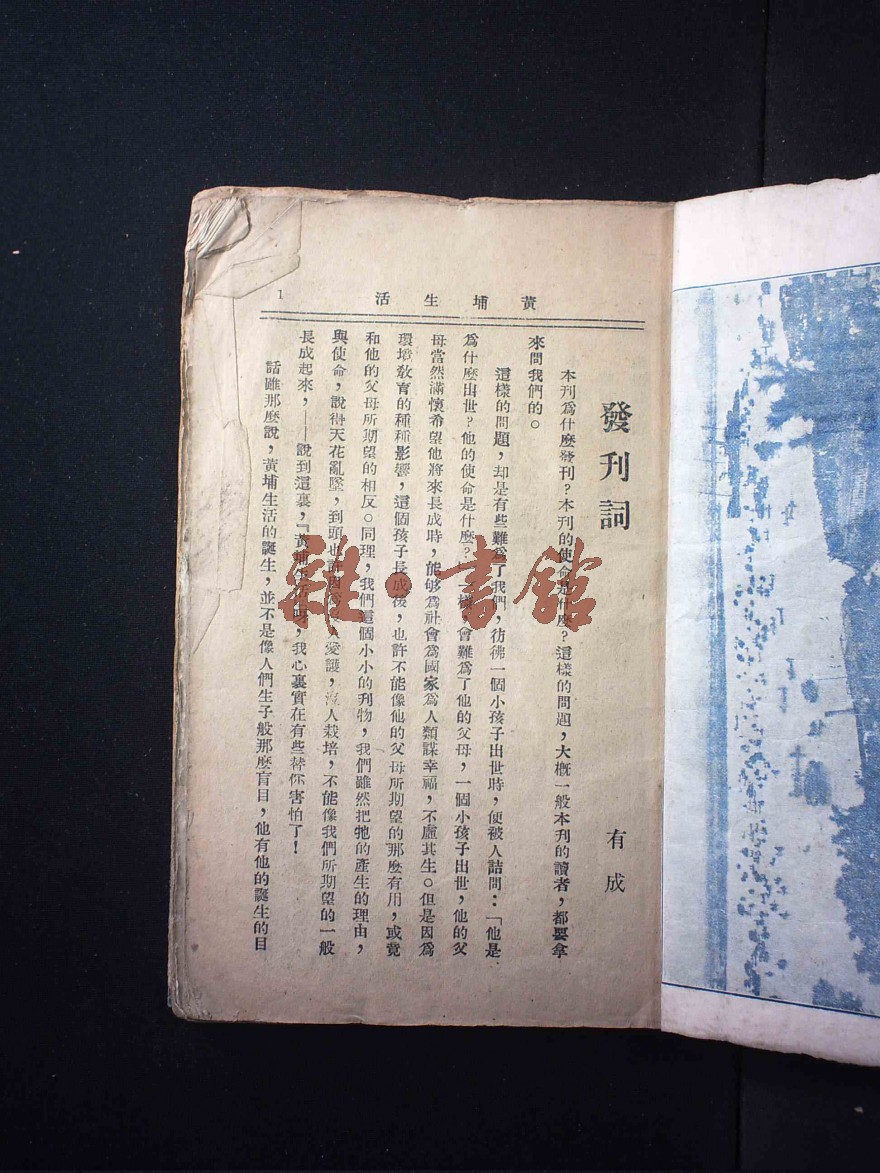 黃埔生活
1
發刊詞
有成
本刊爲什麽發刊?本刊的使命是什麽?這樣的問題,大概一般本刊的讀者,都要拿
來問我們的。
這樣的問題,却是有些難爲了我們,彷彿一個小孩子出世時,便被人詰問:「他是
爲什麽出世?他的使命是什麽?樣,會難爲了他的父母,一個小孩子出世,他的父
母當然滿懷希望他將來長成時,能够爲社會爲國家爲人類謀幸福,不虛其生。但是因爲
環境敎育的種種影響,這個孩子長成後,也許不能像他的父母所期望的那麽有用,或竟
和他的父母所期望的相反。同理,我們這個小小的刊物,我們雖然把牠的產生的理由,
與使命,說得天花亂墜,到頭也許因爲愛護,沒人栽培,不能像我們所期望的一般
長成起來,——說到這裏,『黃埔生活』呀,我心裏實在有些替你害怕了!
話雖那麽說,黃埔生活的誕生,並不是像人們生子般那麽盲目,他有他的誕生的目
雜·書館